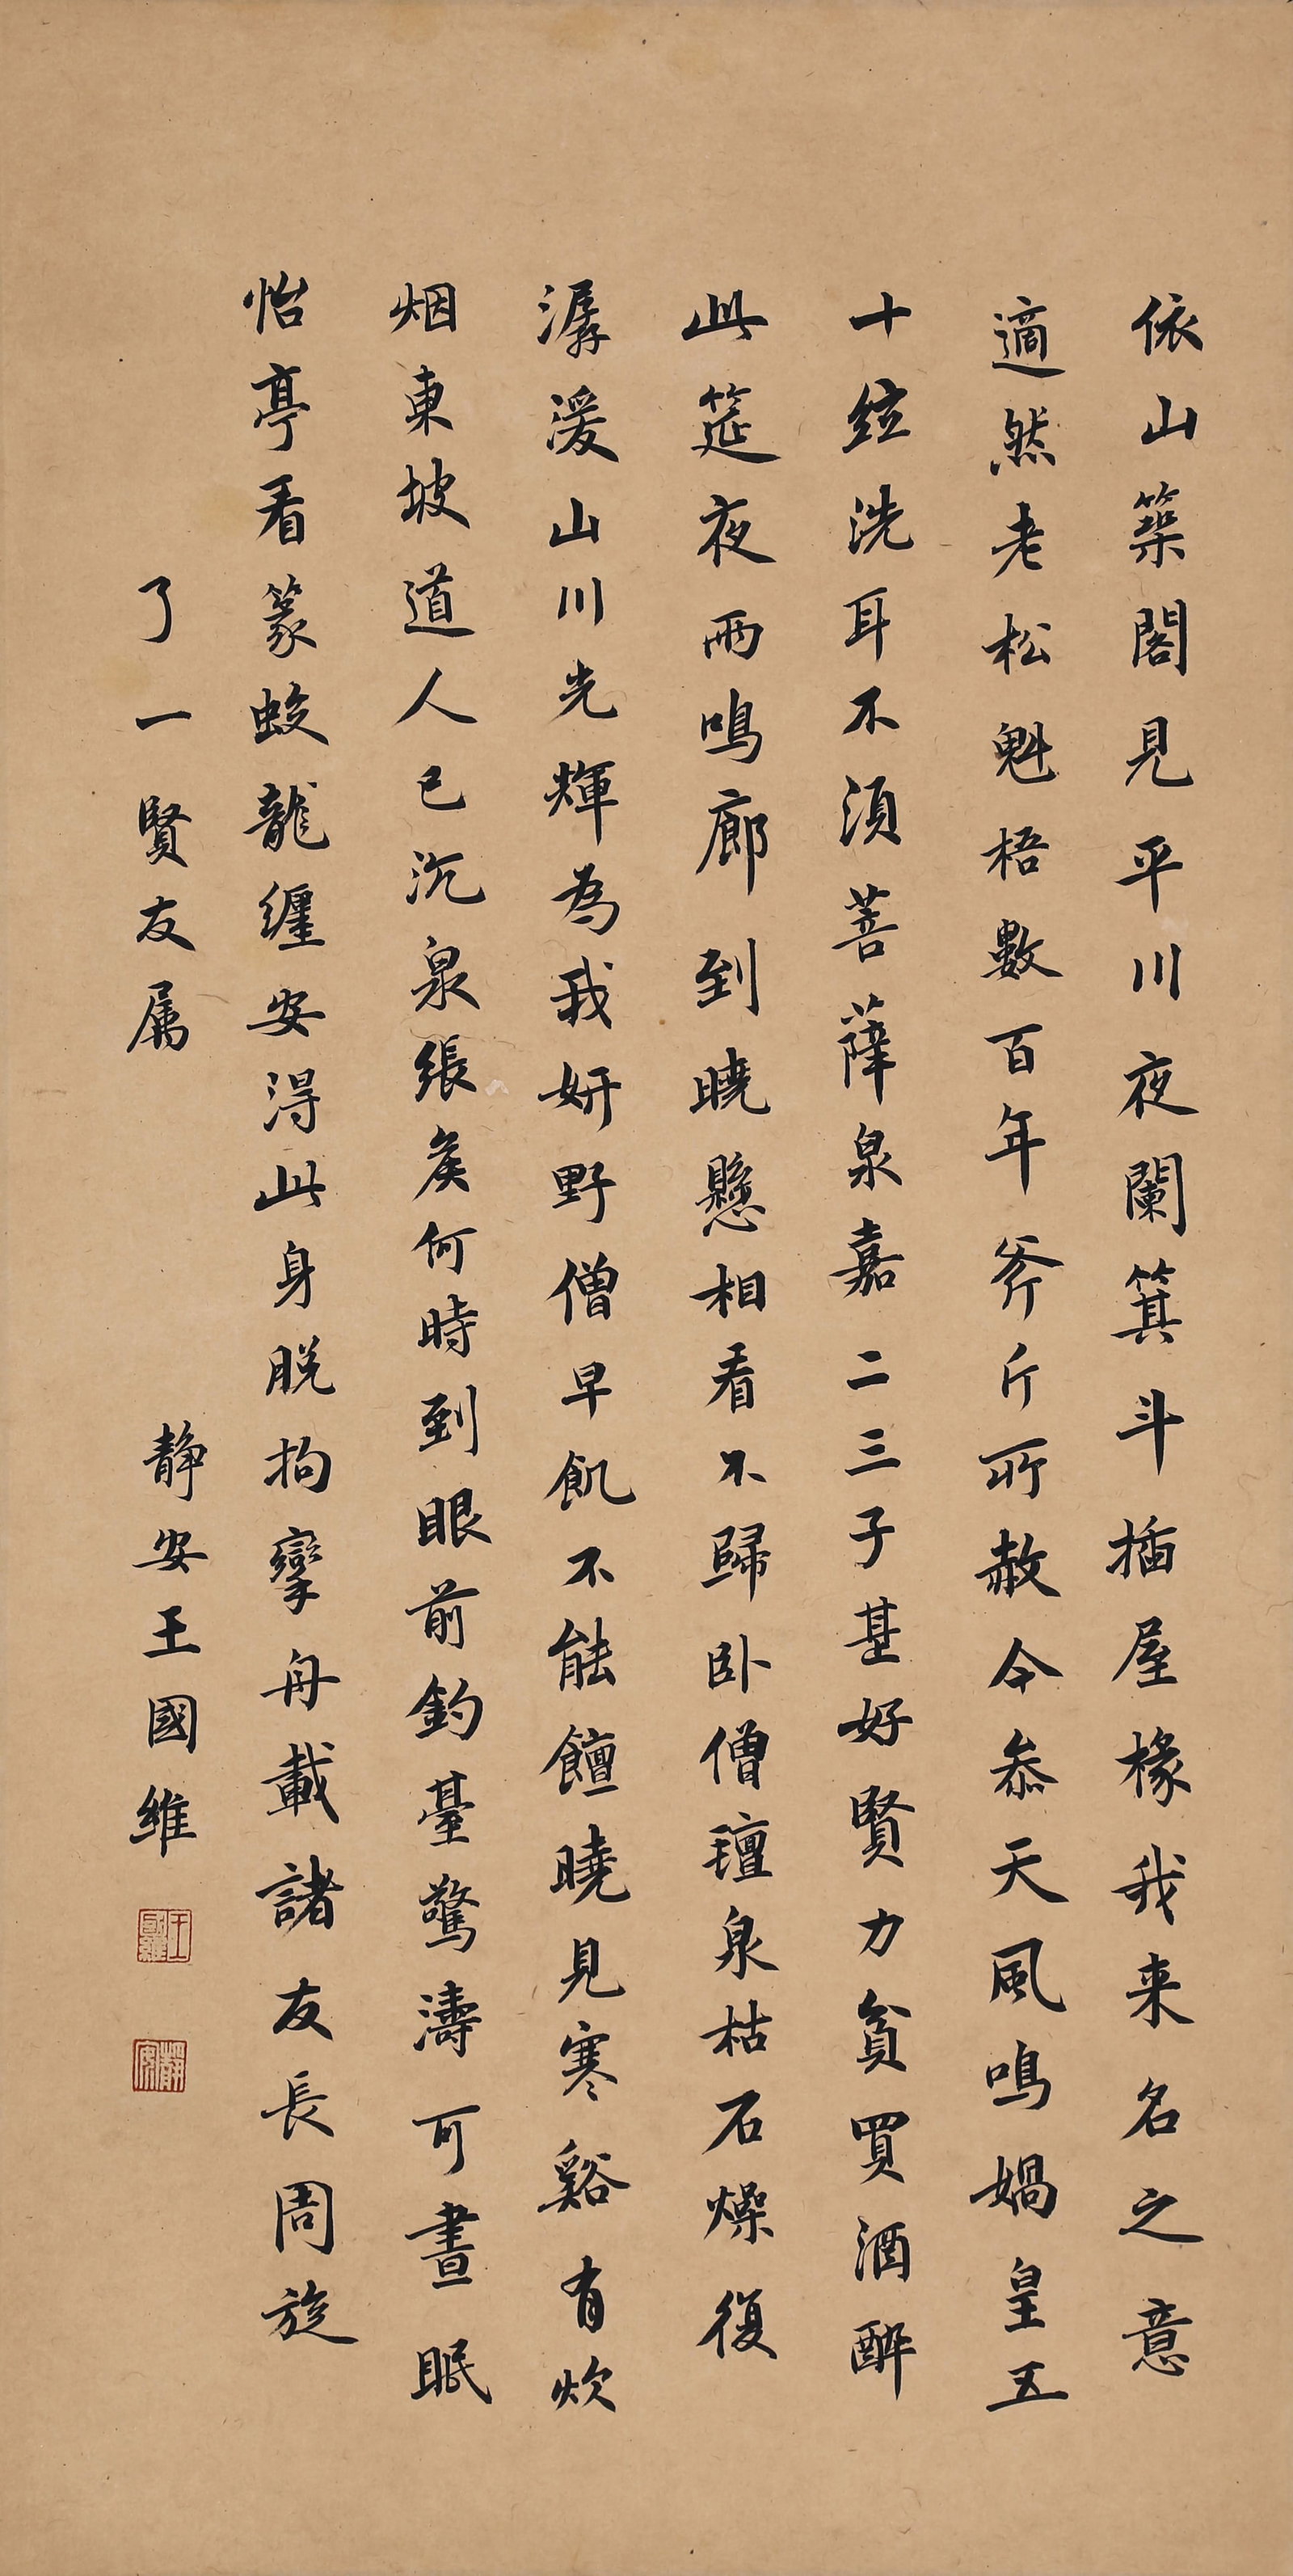 依山築閣見平川夜闌箕斗插屋椽我来名之意
適然老松魁梧數百年斧斤所赦今叅天風鳴媧皇五
十絃洗耳不須菩薩泉嘉二三子甚好賢力貧買酒醉
此筵夜雨鳴廊到曉懸相看不歸卧僧氊泉枯石燥復
潺湲山川光輝為我妍野僧早飢不能饘曉見寒谿有炊
烟東坡道人已沉泉張矦何時到眼前釣臺驚濤可晝眠
怡亭看篆蛟龍纏安得此身脱拘攣舟載諸友長周旋
了一賢友属
静安王國維
王國維
靜安